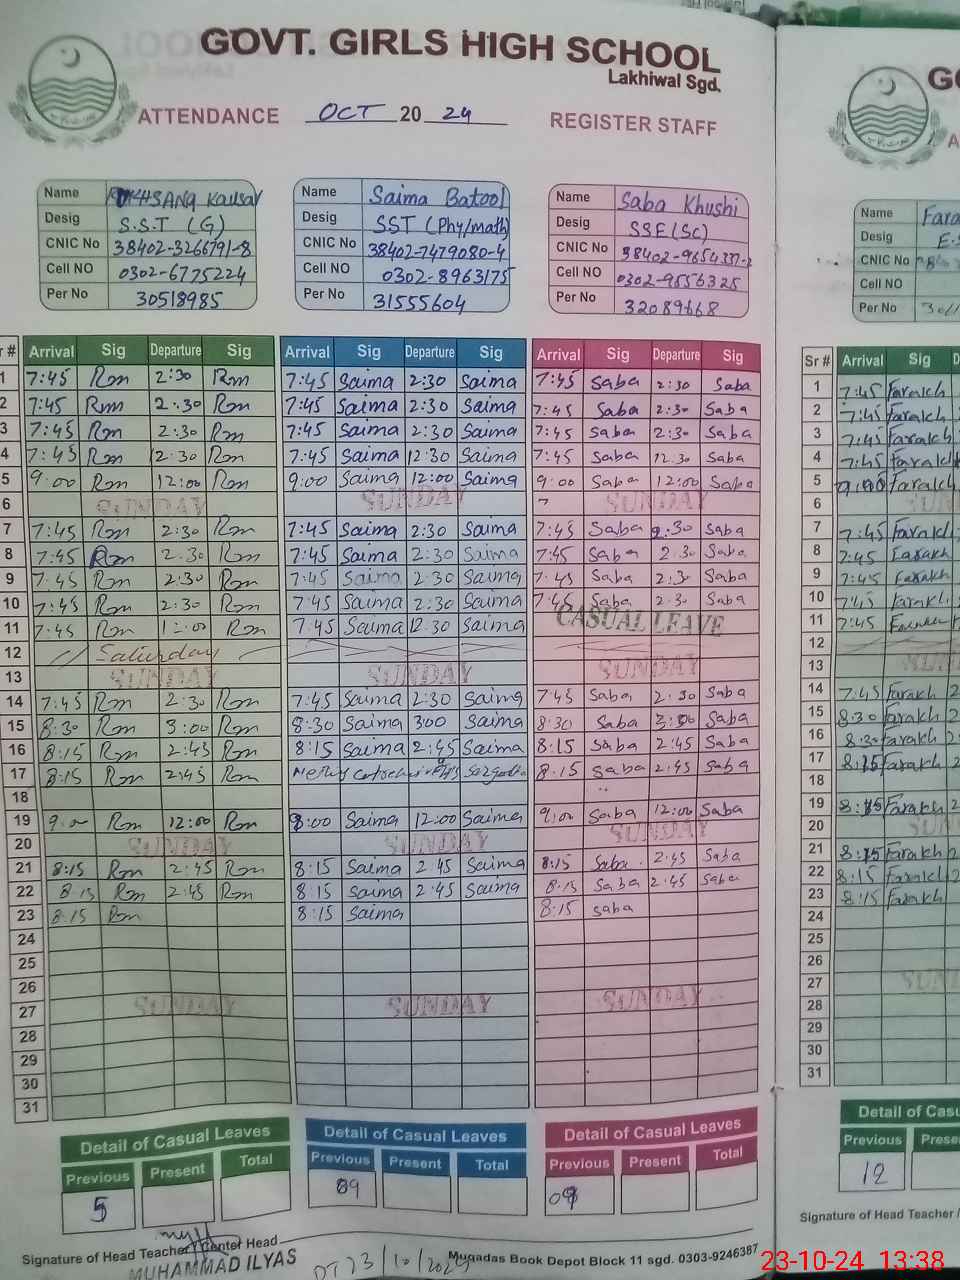 GOVT. GIRLS HIGH SCHOOL
Lakhiwal Sgd.
ATTENDANCE OCT 20 24 REGISTER STAFF
Name RUKHSANA Kausar
Desig S.S.T (G)
CNIC No 38402-3266791-8
Cell NO 0302-6775224
Per No 30518985
Name Saima Batool
Desig SST (Phy/math)
CNIC No 38402-7479080-4
Cell NO 0302-8963175
Per No 31555604
Name Saba Khushi
Desig SSE(Sc)
CNIC No
Cell NO 0302-9556325
Per No 32089668
Name Fara
Desig E.S
CNIC No
Cell NO
Per No
Sr # Arrival Sig Departure Sig Arrival Sig Departure Sig Arrival Sig Departure Sig Sr # Arrival Sig
1 7:45 Rm 2:30 Rm 7:45 Saima 2:30 Saima 7:45 Saba 2:30 Saba 1 7:45 Farakh
2 7:45 Rm 2:30 Rm 7:45 Saima 2:30 Saima 7:45 Saba 2:30 Saba 2 7:45 Farakh
3 7:45 Rm 2:30 Rm 7:45 Saima 2:30 Saima 7:45 Saba 2:30 Saba 3 7:45 Farakh
4 7:45 Rm 12:30 Rm 7:45 Saima 12:30 Saima 7:45 Saba 12:30 Saba 4 7:45 Farakh
5 9:00 Rm 12:00 Rm 9:00 Saima 12:00 Saima 9:00 Saba 12:00 Saba 5 9:00 Farakh
6 SUNDAY SUNDAY SUNDAY 6
7 7:45 Rm 2:30 Rm 7:45 Saima 2:30 Saima 7:45 Saba 2:30 Saba 7 7:45 Farakh
8 7:45 Rm 2:30 Rm 7:45 Saima 2:30 Saima 7:45 Saba 2:30 Saba 8 7:45 Farakh
9 7:45 Rm 2:30 Rm 7:45 Saima 2:30 Saima 7:45 Saba 2:30 Saba 9 7:45 Farakh
10 7:45 Rm 2:30 Rm 7:45 Saima 2:30 Saima 7:45 Saba 2:30 Saba 10 7:45 Farakh
11 7:45 Rm Rm 7:45 Saima 12:30 Saima CASUAL LEAVE 11 7:45
12 Saturday 12
13 SUNDAY SUNDAY SUNDAY 13
14 7:45 Rm 2:30 Rm 7:45 Saima 2:30 Saima 7:45 Saba 2:30 Saba 14 7:45 Farakh
15 8:30 Rm 3:00 Rm 8:30 Saima 300 Saima 8:30 Saba 3:00 Saba 15 8:30 Farakh
16 8:15 Rm 2:45 Rm 8:15 Saima 2:45 Saima 8:15 Saba 2:45 Saba 16 8:30 Farakh
17 8:15 Rm 2:45 Rm Sargodha 8:15 Saba 2:45 Saba 17 8:15 Farakh
18 18
19 9:00 Rm 12:00 Rm 9:00 Saima 12:00 Saima 9:00 Saba 12:00 Saba 19 8:15 Farakh
20 SUNDAY SUNDAY SUNDAY 20
21 8:15 Rm 2:45 Rm 8:15 Saima 2:45 Saima 8:15 Saba 2:45 Saba 21 8:15 Farakh
22 8:15 Rm 2:45 Rm 8:15 Saima 2:45 Saima 8:15 Saba 2:45 Saba 22 8:15 Farakh
23 8:15 Rm 8:15 Saima 8:15 Saba 23 8:15 Farakh
24 24
25 25
26 26
27 SUNDAY SUNDAY SUNDAY 27
28 28
29 29
30 30
31 31
Detail of Casual Leaves Detail of Casual Leaves Detail of Casual Leaves
Previous Present Total Previous Present Total Previous Present Total Previous
5 09 12
Signature of Head Teacher/Center Head
MUHAMMAD ILYAS
DT 23/10/2024
Muqadas Book Depot Block 11 sgd. 0303-9246387
Signature of Head Teacher
23-10-24 13:38